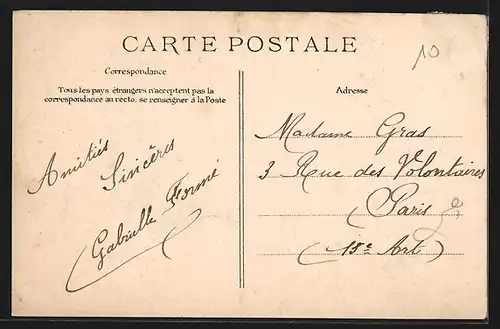 CARTE POSTALE
10
Correspondance
Tous les pays étrangers n'acceptent pas la
correspondance au recto, se renseigner à la Poste
Amitiés
Sincères
Gabrielle Formé
Adresse
Madame Gras
3 Rue des Volontaires
(Paris
(15e Art)